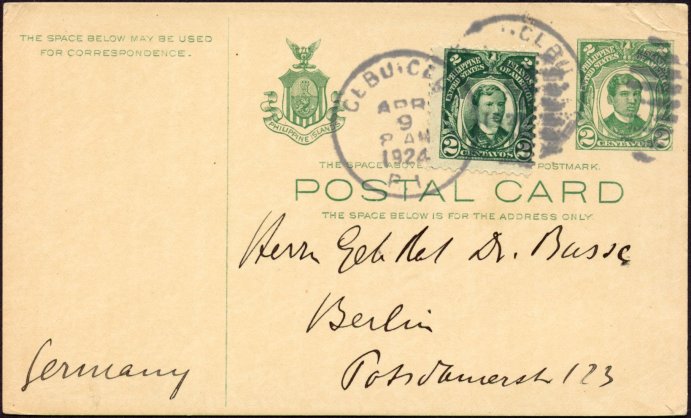 THE SPACE BELOW MAY BE USED
FOR CORRESPONDENCE.
PHILIPPINE ISLANDS
CEBU, CE
APR
9
8 AM
1924
P.I.
CEBU
2 2
PHILIPPINE ISLANDS
UNITED STATES OF AMERICA
2 CENTAVOS 2
2 2
PHILIPPINE ISLANDS
UNITED STATES OF AMERICA
2 CENTAVOS 2
THE SPACE ABOVE POSTMARK.
POSTAL CARD
THE SPACE BELOW IS FOR THE ADDRESS ONLY.
Herrn Geh Rat Dr. Busse
Berlin
Potsdamerstr 123
Germany